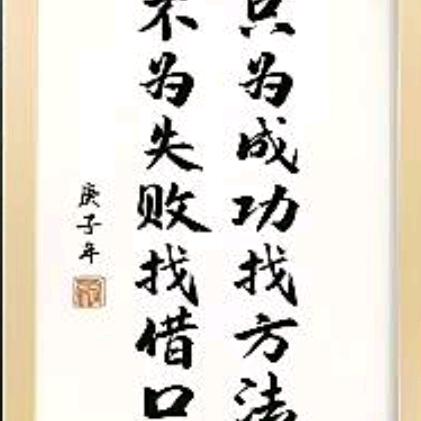 只为成功找方法
不为失败找借口
庚子年